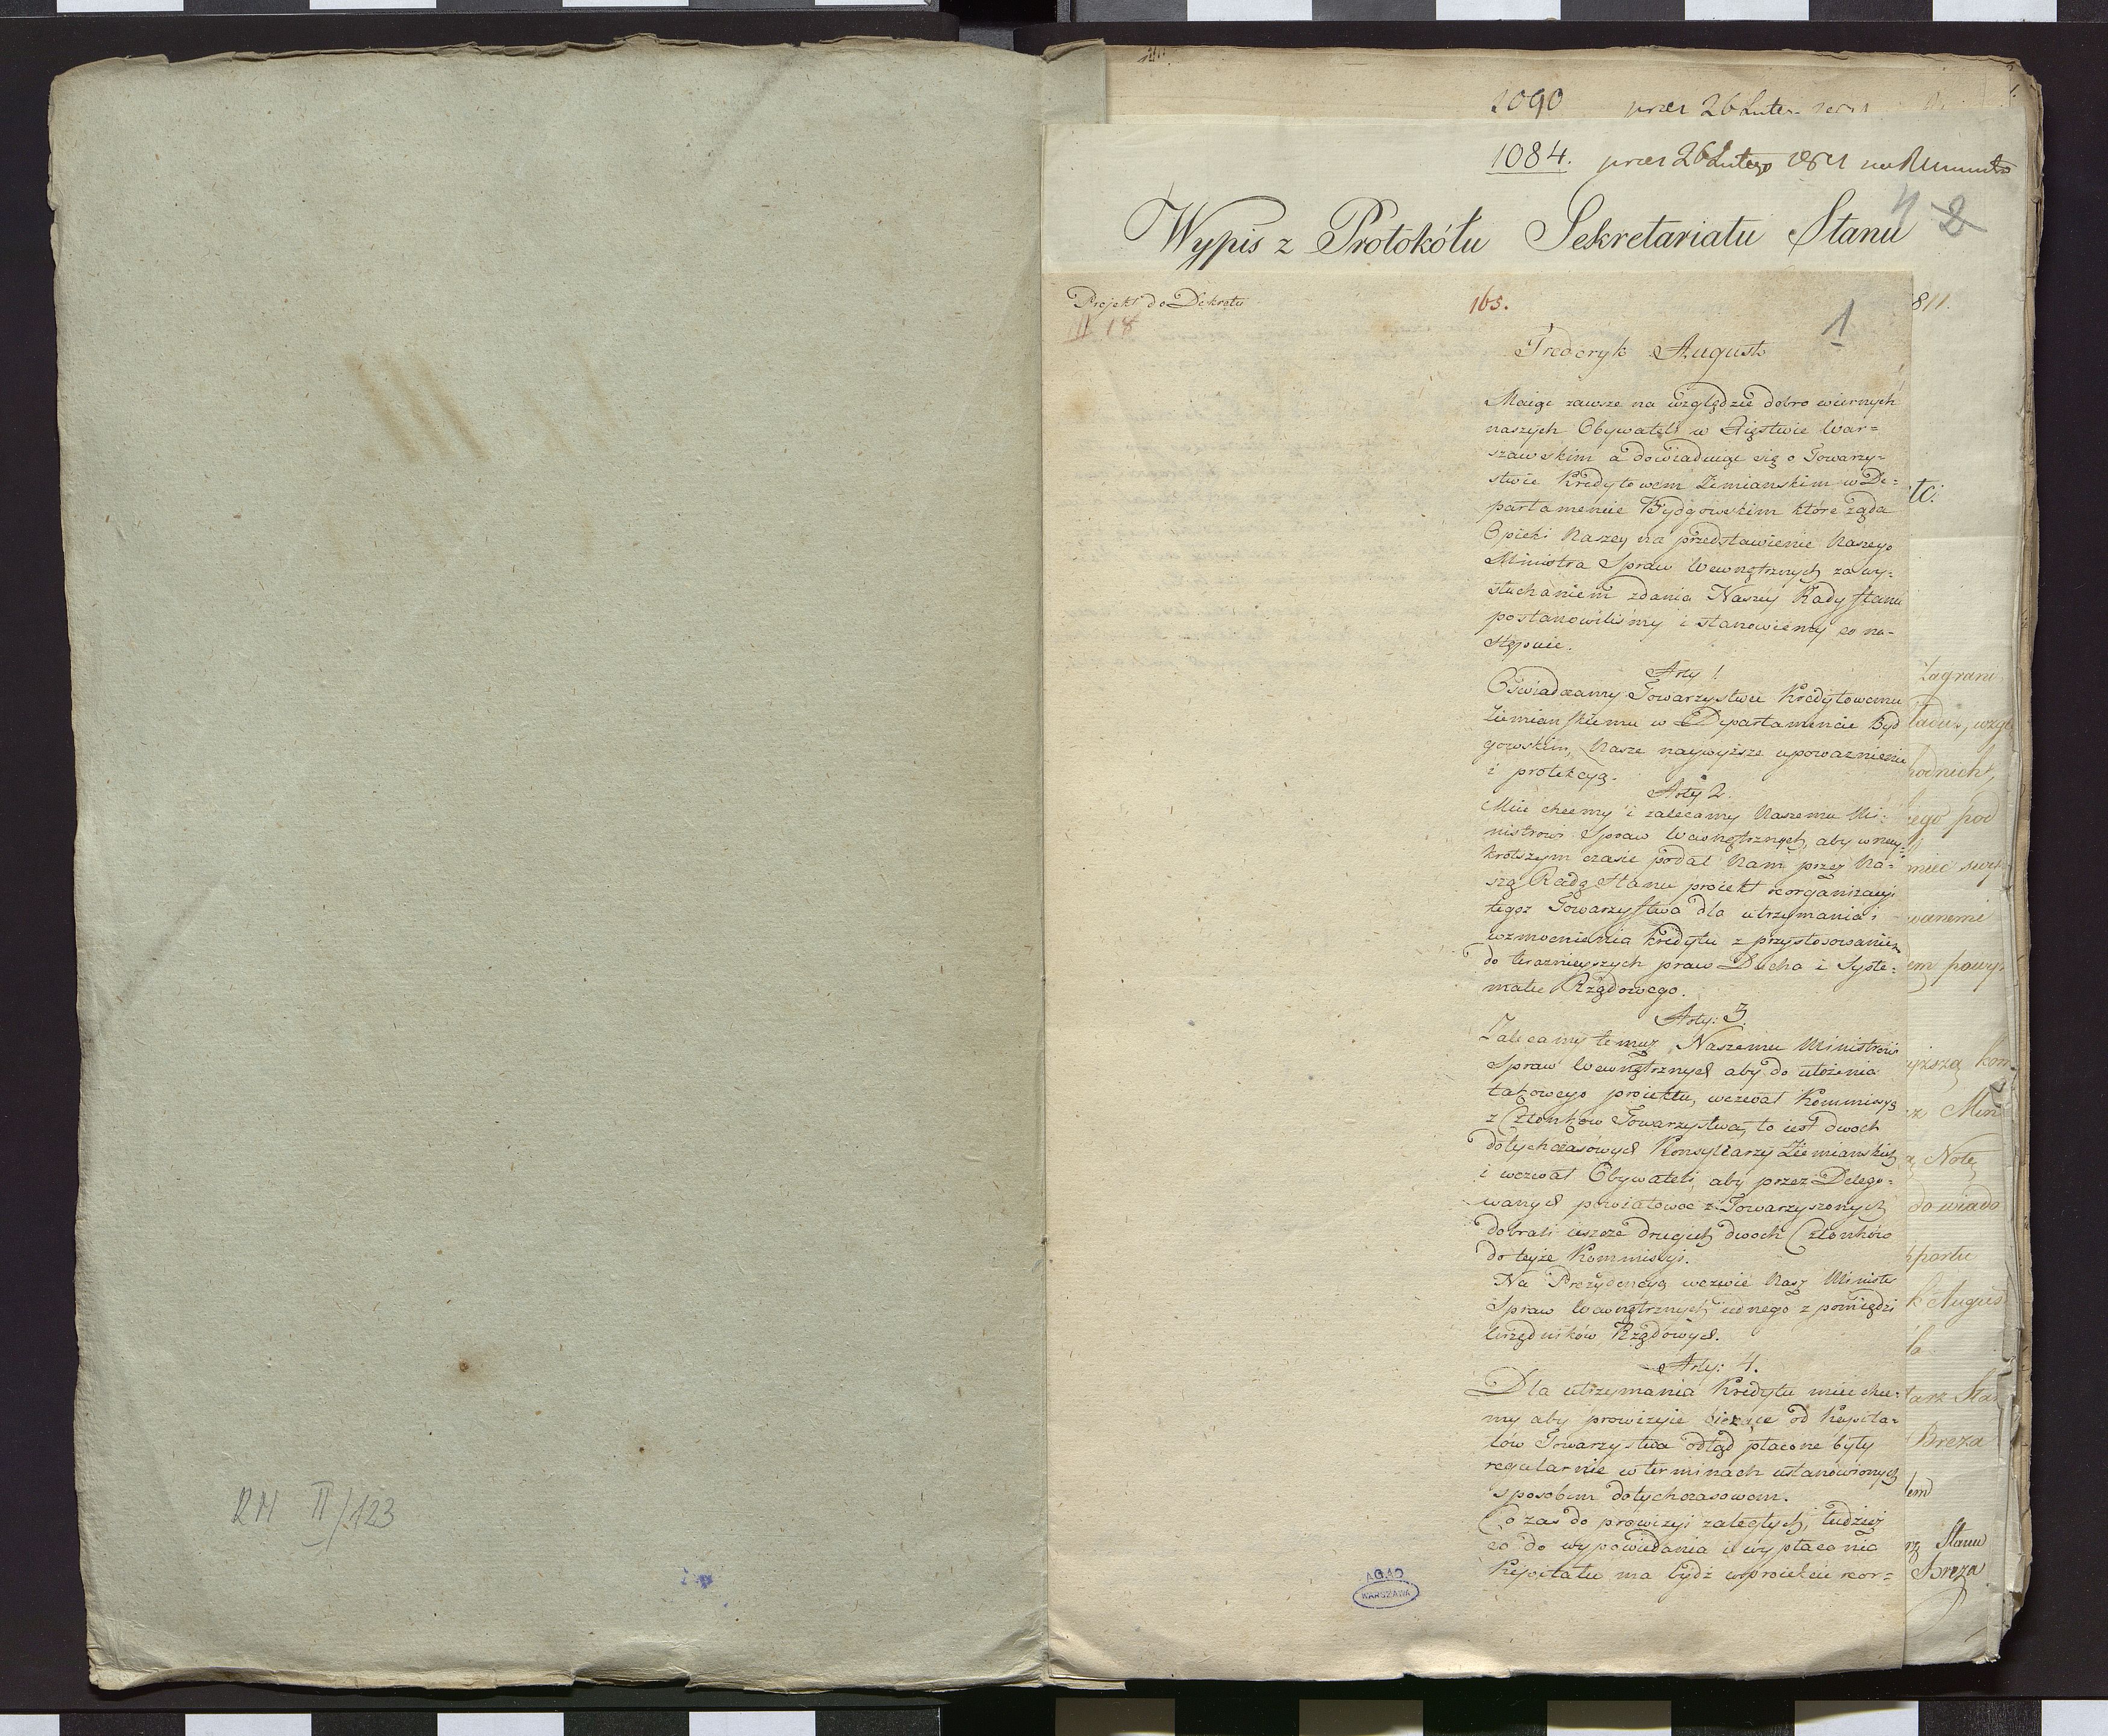 2090 przez 26 Lute
1084. przez 26 Lutego 1811
Wypis z Protokółu Sekretariatu Stanu
4 2
Projekt do Dekretu
165.
811.
II 18
1
Frederyk August
Maiąc zawsze na względzie dobro wiernych
naszych Obywateli w Xięstwie War=
szawskim a dowiaduiąc się o Towarzy=
stwie Kredytowem Ziemianskim w De=
partamencie Bydgowskim które żąda
Opieki Naszey na przedstawienie Naszego
Ministra Spraw Wewnętrznych za wy=
słuchaniem zdania Naszey Rady Stanu
postanowiliśmy i stanowiemy co na=
stępuie.
Arty 1
Oświadczamy Towarzystwu Kredytowemu
Ziemianskiemu w Departamencie Byd
gowskim, Nasze naywyższe upoważnienie
i protekcyą.
Arty 2.
Mieć chcemy i zalecamy Naszemu Mi=
nistrowi Spraw Wewnętrznych, aby w nay=
krotszym czasie podał Nam przez Na=
szą Radę Stanu proiekt reorganizacyi
tegoż Towarzystwa dla utrzymania i
wzmocnienia kredytu z przystosowaniem
do teraznieyszych praw Ducha i Syste=
matu Rządowego.
Arty: 3
Zalecamy temuż Naszemu Ministrowi
Spraw Wewnętrznych aby do ułożenia
takowego proiektu, wezwał Kommissyą
z Członkow Towarzystwa, to iest dwoch
dotychczasowych Konsyliarzy Ziemianskich
i wezwał Obywateli aby przez Delego=
wanych powiatowoc z Towarzyszonych
dobrali ieszcze drugich dwoch Członków
do teyże Kommissyi.
Na Prezydencyą wezwie Nasz Minister
Spraw Wewnętrznych iednego z pomiędzi
Urzędników Rządowych.
Arty: 4.
Dla utrzymania Kredytu mieć chce=
my aby prowizyie bieżące od Kapita=
łów Towarzystwa odtąd płacone były
regularnie w terminach ustanowionych
sposobem dotychczasowem.
Co zaś do prowizyi zaległych, tudzież
co do wypowiedania i wypłacenia
Kapitału ma bydź w proiekcie reor=
etc:
Zagrani
ładu, wzgl
hodnich,
ego pod
mieć
wienemi
em powyż
yższą kom
rz Min
Notę
do wiado
pportu
k August
la
tarz Stan
Breza
łem
rz Stanu
Breza
RM II/123
AGAD
WARSZAWA